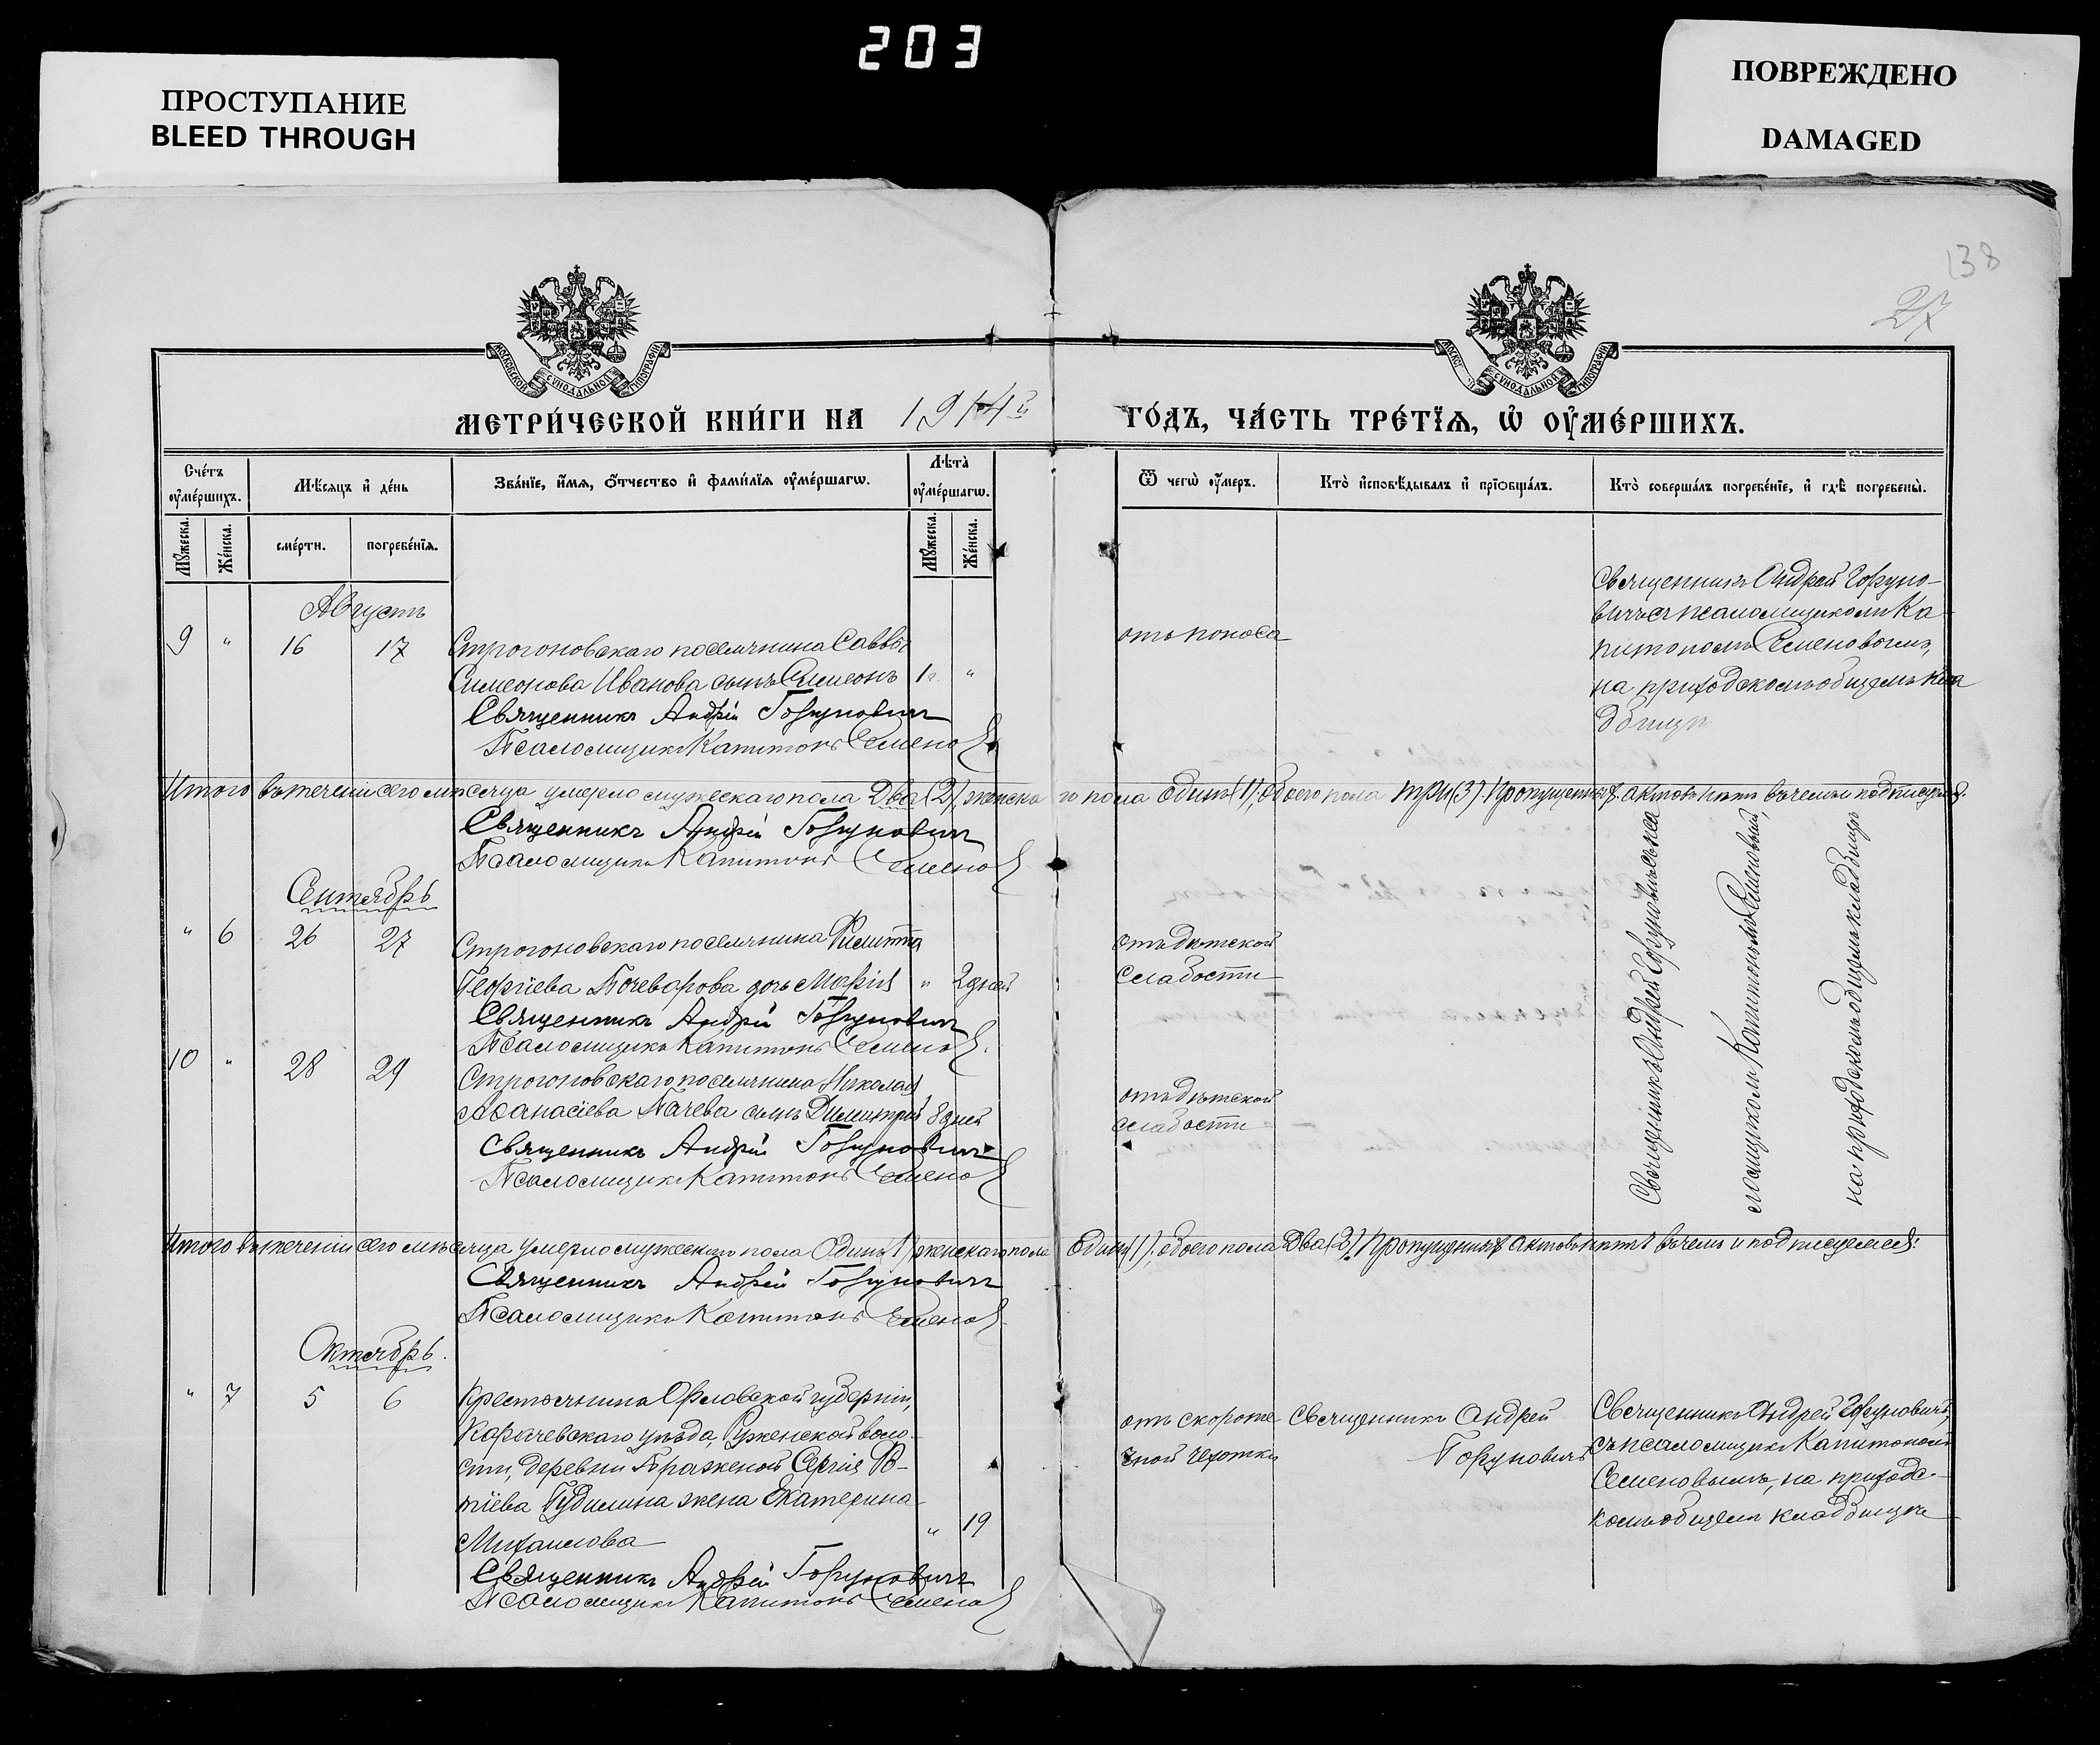 203
ПРОСТУПАНИЕ
BLEED THROUGH
ПОВРЕЖДЕНО
DAMAGED
138
27
МОСКОВСКОЙ СУНОДАЛЬНОЙ ТИПОГРАФІИ
МОСКОВ СУНОДАЛЬНОЙ ТИПОГРАФІИ
МЕТРИ́ЧЕСКОЙ КНИ́ГИ НА 1914й ГО́ДЪ, ЧА́СТЬ ТРЕ́ТЇѦ, Ѡ҆ ОУ҆МЕ́РШИХЪ.
Сче́тъ оу҆ме́ршихъ.
Мꙋ́жеска.
Же́нска.
Мѣ́сяцъ и҆ де́нь
сме́рти.
погребе́нїя.
Зва́нїе, и҆́мя, ѻ҆́тчество и҆ фами́лїя оу҆ме́ршагѡ.
Лѣ́та оу҆ме́ршагѡ.
Мꙋ́жеска.
Же́нска.
Ѿ чегѡ̀ оу҆́меръ.
Кто̀ и҆сповѣ́дывалъ и҆ прїѻбща́лъ.
Кто̀ соверша́лъ погребе́нїе, и҆ гдѣ̀ погребены̀.
Августъ
9 " 16 17 Строгоновскаго поселянина Саввы
Симеонова Иванова сынъ Симеонъ 1г. "
Священникъ Андрій Горуновичъ
Псаломщикъ Капитонъ Семенов
отъ поноса
Священникъ Андрей Горуно-
вичъ съ псаломщикомъ Ка-
питономъ Семеновымъ,
на приходскомъ общемъ кла
дбищѣ
Итого въ теченіи сего мѣсяца умерло мужескаго пола Два (2) женска го пола один (1), обоего пола три (3). Пропущенныхъ актовъ нѣтъ въ чемъ и подписуемся.
Священникъ Андрій Горуновичъ
Псаломщикъ Капитонъ Семенов
Сентябрь
" 6 26 27 Строгоновскаго поселянина Филиппа
Георгіева Почеварова дочь Марія " 2 дней
Священникъ Андрій Горуновичъ
Псаломщикъ Капитонъ Семенов.
отъ дѣтской
слабости
10 " 28 29 Строгоновскаго поселянина Николая
Аѳанасіева Пачева сынъ Димитрій 8 дней
Священникъ Андрій Горуновичъ
Псаломщикъ Капитонъ Семенов
отъ дѣтской
слабости
Священникъ Андрей Горуновичъ съ пса
ломщикомъ Капитономъ Семеновымъ,
на приходскомъ общемъ кладбищѣ
Итого въ теченіи сего мѣсяца умерло мужескаго пола Одинъ (1) женскаго пола один (1), обоего пола Два (2). Пропущенныхъ актовъ нѣтъ въ чемъ и подписуемся.
Священникъ Андрій Горуновичъ
Псаломщикъ Капитонъ Семенов
Октябрь.
" 7 5 6 Крестьянина Орловской губерніи,
Карачевскаго уѣзда, Руженской воло-
сти, деревни Бражной Сергія
Гудилина жена Екатерина
Михаилова " 19
Священникъ Андрій Горуновичъ
Псаломщикъ Капитонъ Семенов
отъ скороте
чной чахотки
Священникъ Андрей
Горуновичъ
Священникъ Андрей Горуновичъ,
съ псаломщик. Капитономъ
Семеновымъ, на приходс-
комъ общемъ кладбищѣ